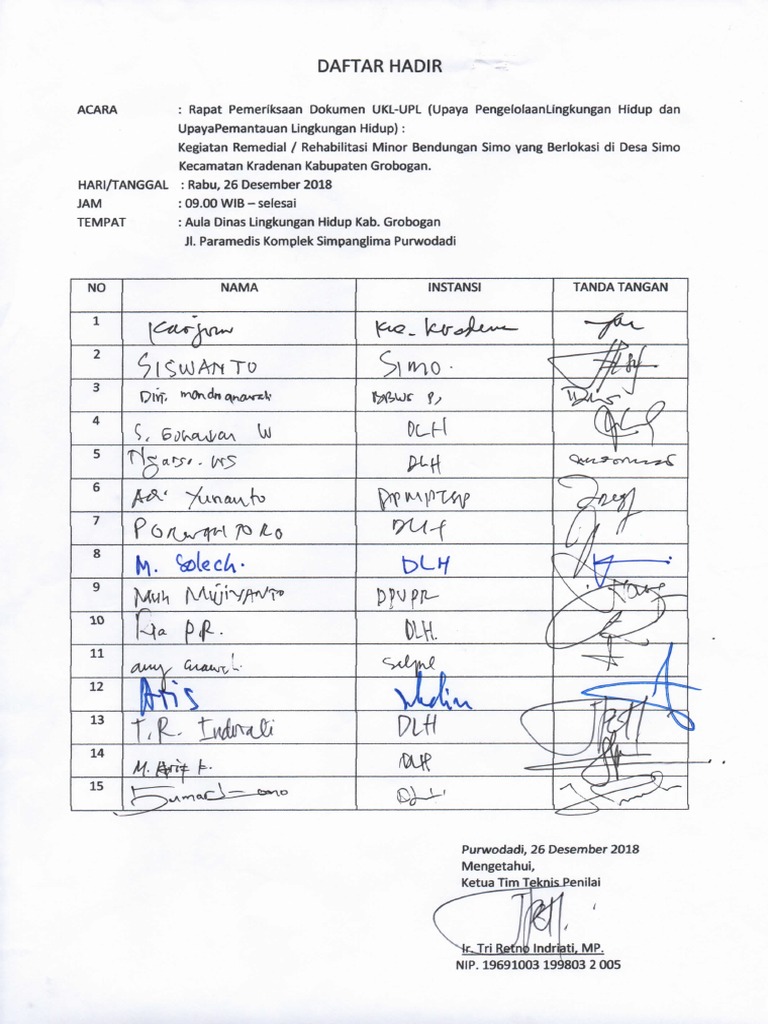 DAFTAR HADIR
ACARA : Rapat Pemeriksaan Dokumen UKL-UPL (Upaya PengelolaanLingkungan Hidup dan
UpayaPemantauan Lingkungan Hidup) :
Kegiatan Remedial / Rehabilitasi Minor Bendungan Simo yang Berlokasi di Desa Simo
Kecamatan Kradenan Kabupaten Grobogan.
HARI/TANGGAL : Rabu, 26 Desember 2018
JAM : 09.00 WIB – selesai
TEMPAT : Aula Dinas Lingkungan Hidup Kab. Grobogan
Jl. Paramedis Komplek Simpanglima Purwodadi
NO NAMA INSTANSI TANDA TANGAN
1
2 SISWANTO SIMO.
3
4 S. Gunawan W DLH
5 DLH
6 Adi Yunanto DPMPTSP
7 DLH
8 M. Solech. DLH
9 Muh Mujiyanto DPUPR
10 Ria P.R. DLH.
11
12 Aris
13 T.R. Indriati DLH
14 M. Arif F. DLH
15
Purwodadi, 26 Desember 2018
Mengetahui,
Ketua Tim Teknis Penilai
Ir. Tri Retno Indriati, MP.
NIP. 19691003 199803 2 005